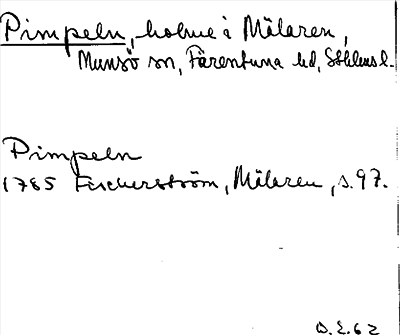 Pimpeln, holme i Mälaren,
Munsö sn, Färentuna hd, Sthlms l.
Pimpeln
1785 Fischerström, Mälaren, s. 97.
D. E. 62